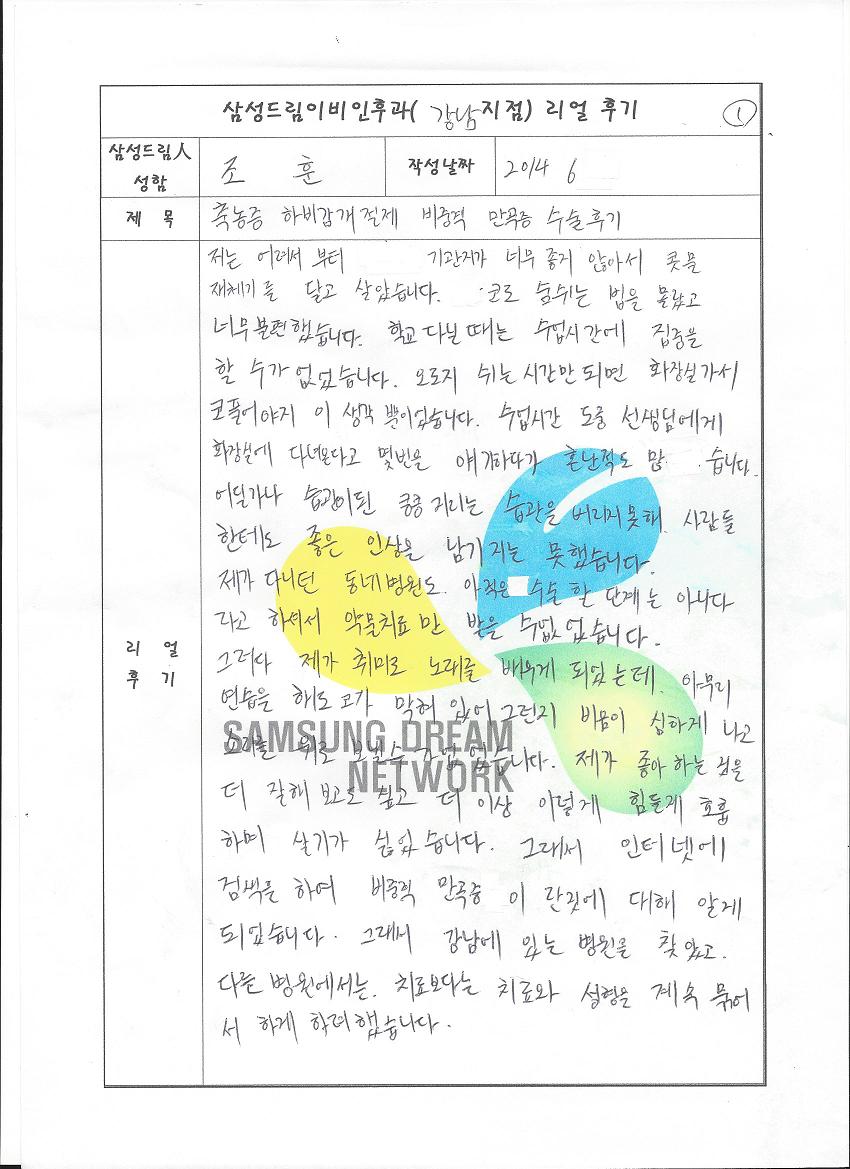 삼성드림이비인후과( 강남 지점) 리얼 후기 ①
삼성드림人
성함
조 훈
작성날짜
2014 6
제 목
축농증 하비갑개절제 비중격 만곡증 수술후기
리 얼
후 기
저는 어려서 부터 기관지가 너무 좋지 않아서 콧물
재체기를 달고 살았습니다. 코로 숨쉬는 법을 몰랐고
너무불편했습니다. 학교다닐때는 수업시간에 집중을
할 수가 없었습니다. 오로지 쉬는시간만되면 화장실가서
코풀어야지 이 생각 뿐이었습니다. 수업시간 도중 선생님에게
화장실에 다녀온다고 몇번을 얘기하다가 혼난적도 많 습니다.
어딜가나 습관이된 킁킁거리는 습관을 버리지못해. 사람들
한테도 좋은 인상을 남기지는 못했습니다.
제가 다니던 동네병원도. 아직은 수술 할 단계는 아니다
라고 하셔서 약물치료만 받을 수밖 없었습니다.
그러다 제가 취미로 노래를 배우게 되었는데. 아무리
연습을 해도 코가 막혀 있어 그런지 비음이 심하게 나고
소리를 위로 보낼수 가없었습니다. 제가 좋아하는 것을
더 잘해보고도 싶고 더이상 이렇게 힘들게 호흡
하며 살기가 싫었습니다. 그래서 인터넷에
검색을 하여 비중격 만곡증 이 란것에 대해 알게
되었습니다. 그래서 강남에 있는 병원을 찾았고.
다른 병원에서는. 치료보다는 치료와 성형을 계속 묶어
서 하게 하려했습니다.
SAMSUNG DREAM
NETWORK